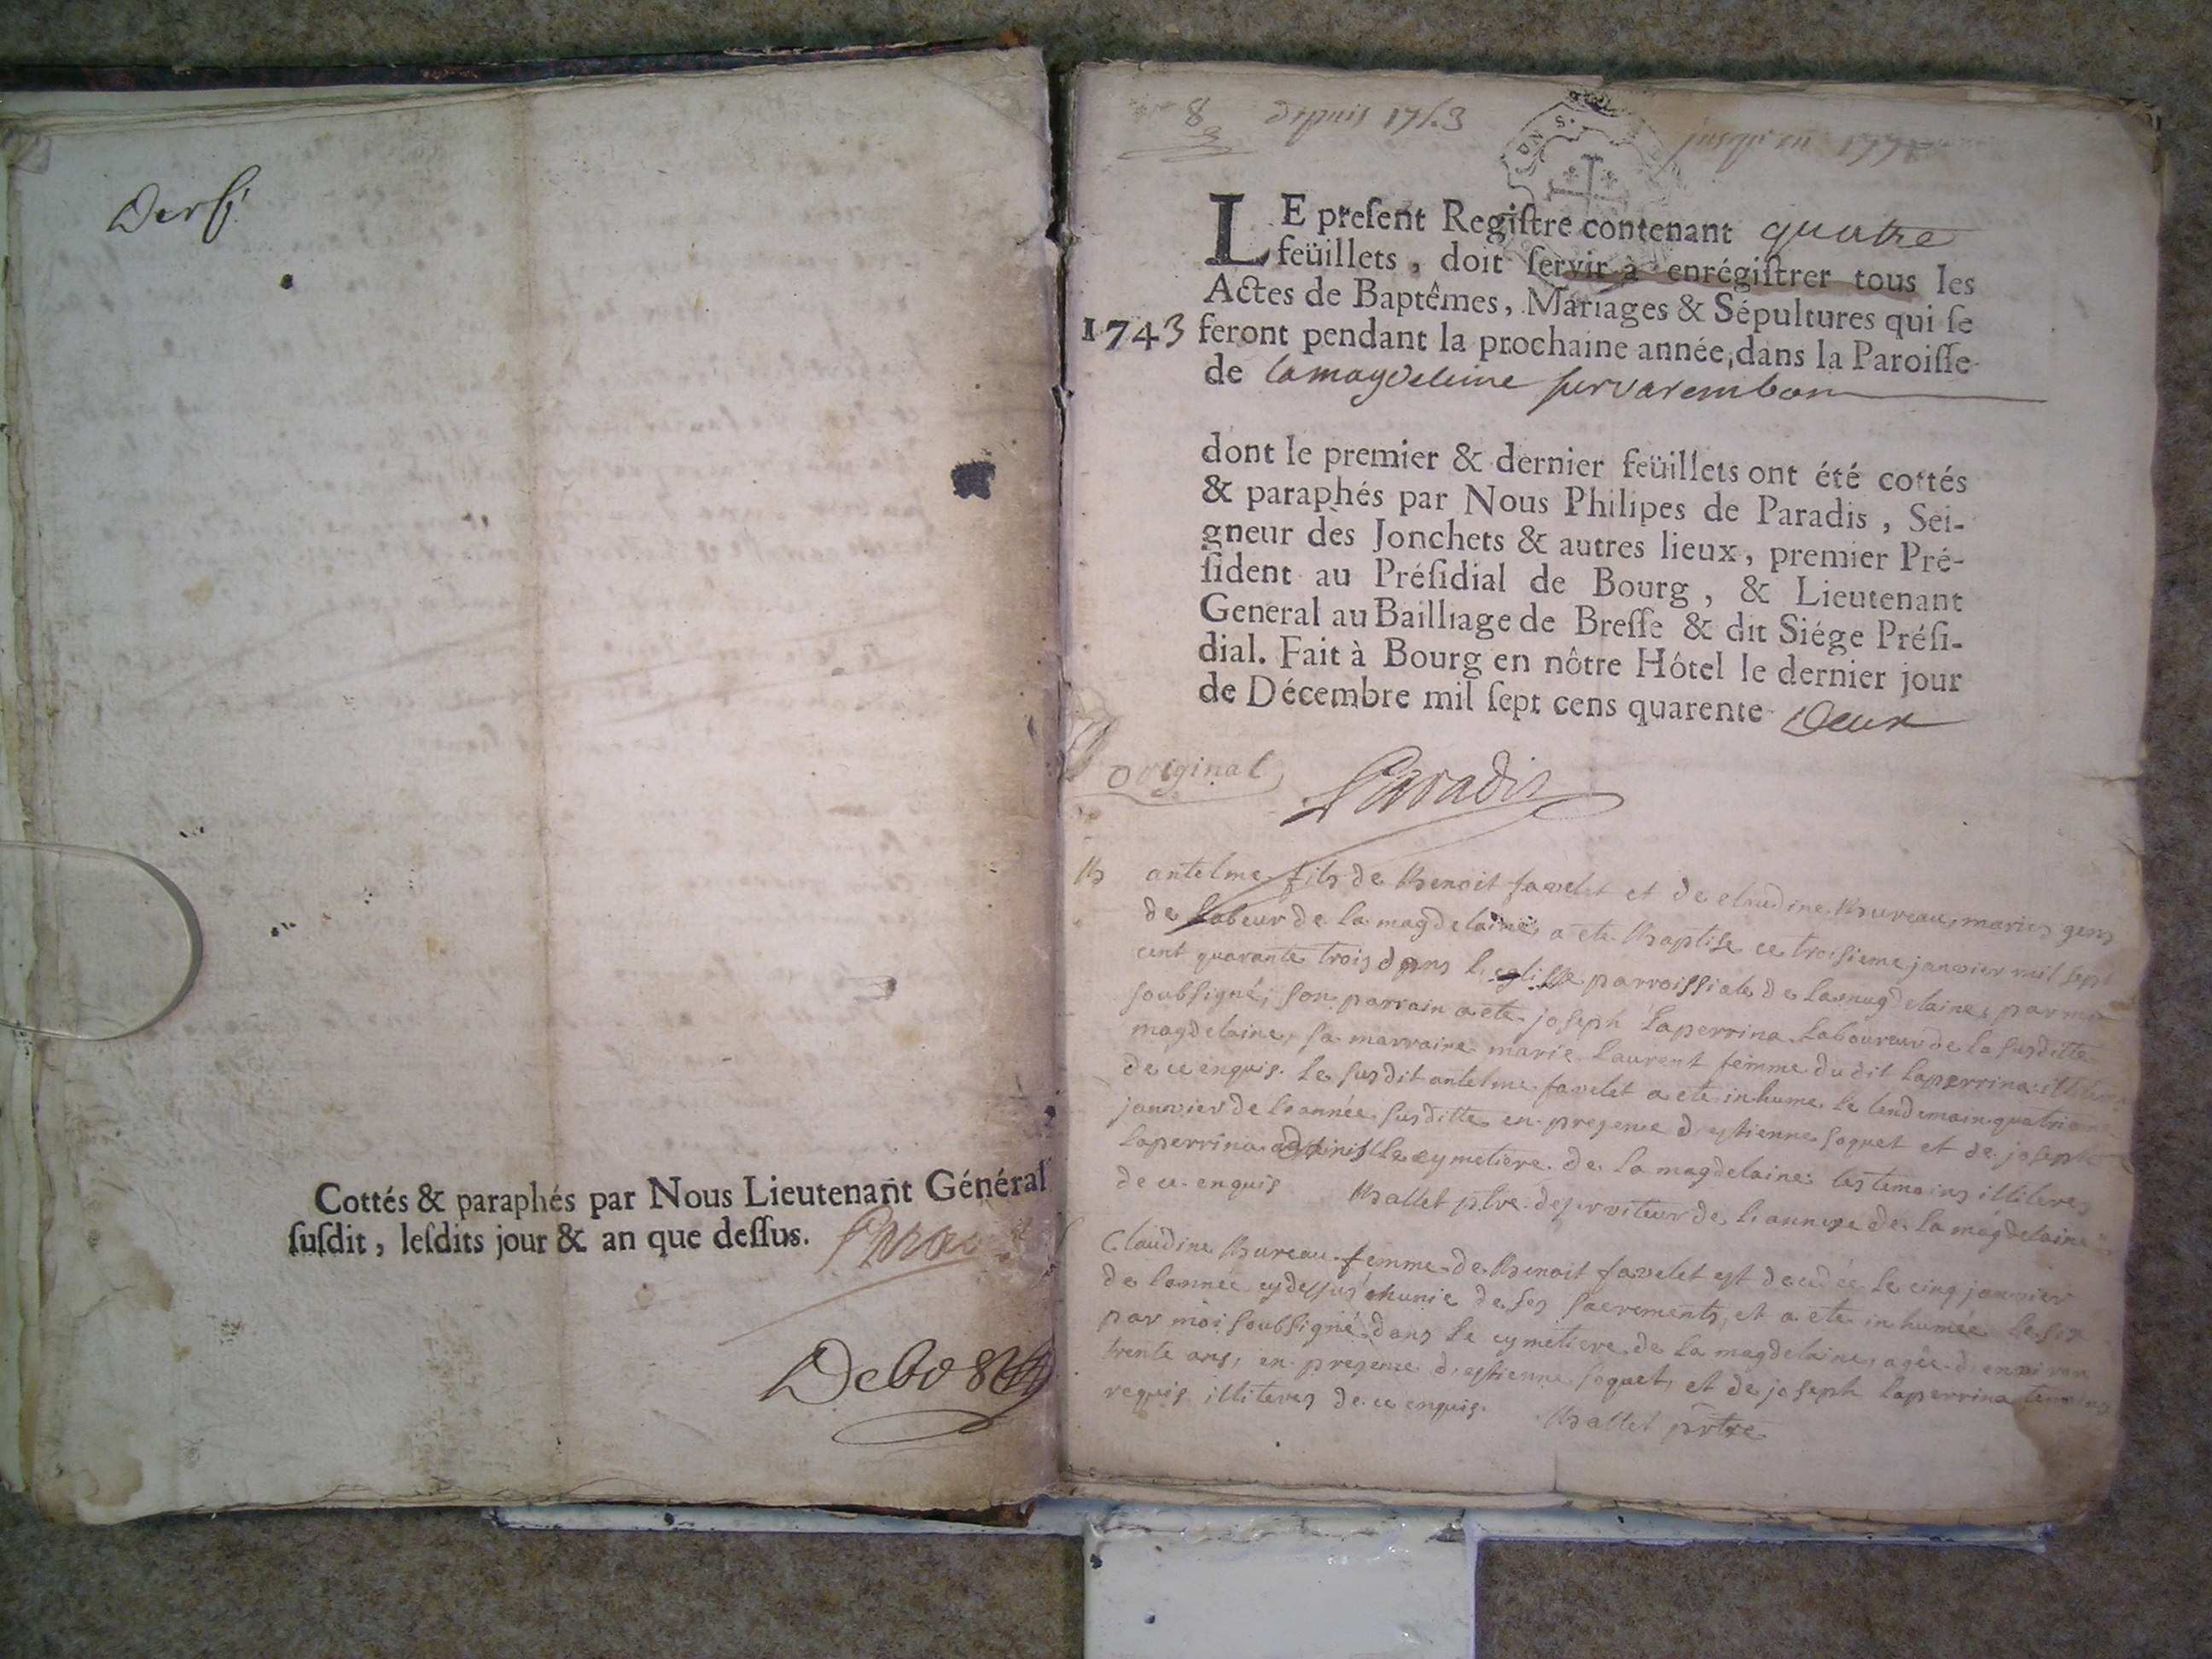 Cottés & paraphés par Nous Lieutenant Général
ſuſdit, leſdits jour & an que deſſus.
8 depuis 1743 jusqu'en
LE preſent Regiſtre contenant quatre
feüillets, doit ſervir à enrégiſtrer tous les
Actes de Baptêmes, Mariages & Sépultures qui ſe
1743 feront pendant la prochaine année, dans la Paroiſſe
de lamagdeleine sur varembon
dont le premier & dernier feüillets ont été cottés
& paraphés par Nous Philipes de Paradis, Sei-
gneur des Jonchets & autres lieux, premier Pré-
ſident au Préſidial de Bourg, & Lieutenant
General au Bailliage de Breſſe & dit Siége Préſi-
dial. Fait à Bourg en nôtre Hôtel le dernier jour
de Décembre mil ſept cens quarente Deux
original Paradis
B antelme fils de Benoit favelet et de claudine Bureau, maries gens
de Labeur de la magdelaine, a ete Baptise ce troisieme janvier mil sept
cent quarante trois dans l'eglise parroissiale de la magdelaine, par moi
soubsigné; son parrain a ete joseph Laperrina Laboureur de la susditte
magdelaine, sa marraine marie Laurent femme du dit Laperrina illiteres
de ce enquis. Le susdit antelme favelet a ete inhume le lendemain quatrieme
janvier de l'année susditte en presence d'estienne soquet et de joseph
Laperrina le cymetiere de la magdelaine les temoins illiteres
de ce enquis Ballet ptre desserviteur de l'annexe de la magdelaine
Claudine Bureau femme de Benoit favelet est decedée le cinq janvier
de l'année cy dessus munie de ses sacrements, et a ete inhumée le six
par moi soubsigné dans le cymetiere de la magdelaine, agée d'environ
trente ans, en presence d'estienne soquet, et de joseph Laperrina temoins
requis illiteres de ce enquis. Ballet prtre